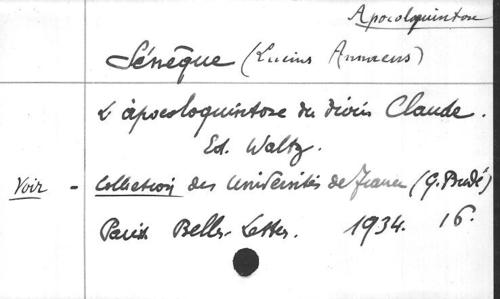 Apocoloquintose
Sénèque (Lucius Annaeus)
L'apocoloquintose du divin Claude.
Ed. Waltz.
Voir - Collection des Universités de France (G. Budé)
Paris Belles-Lettres. 1934. 16.